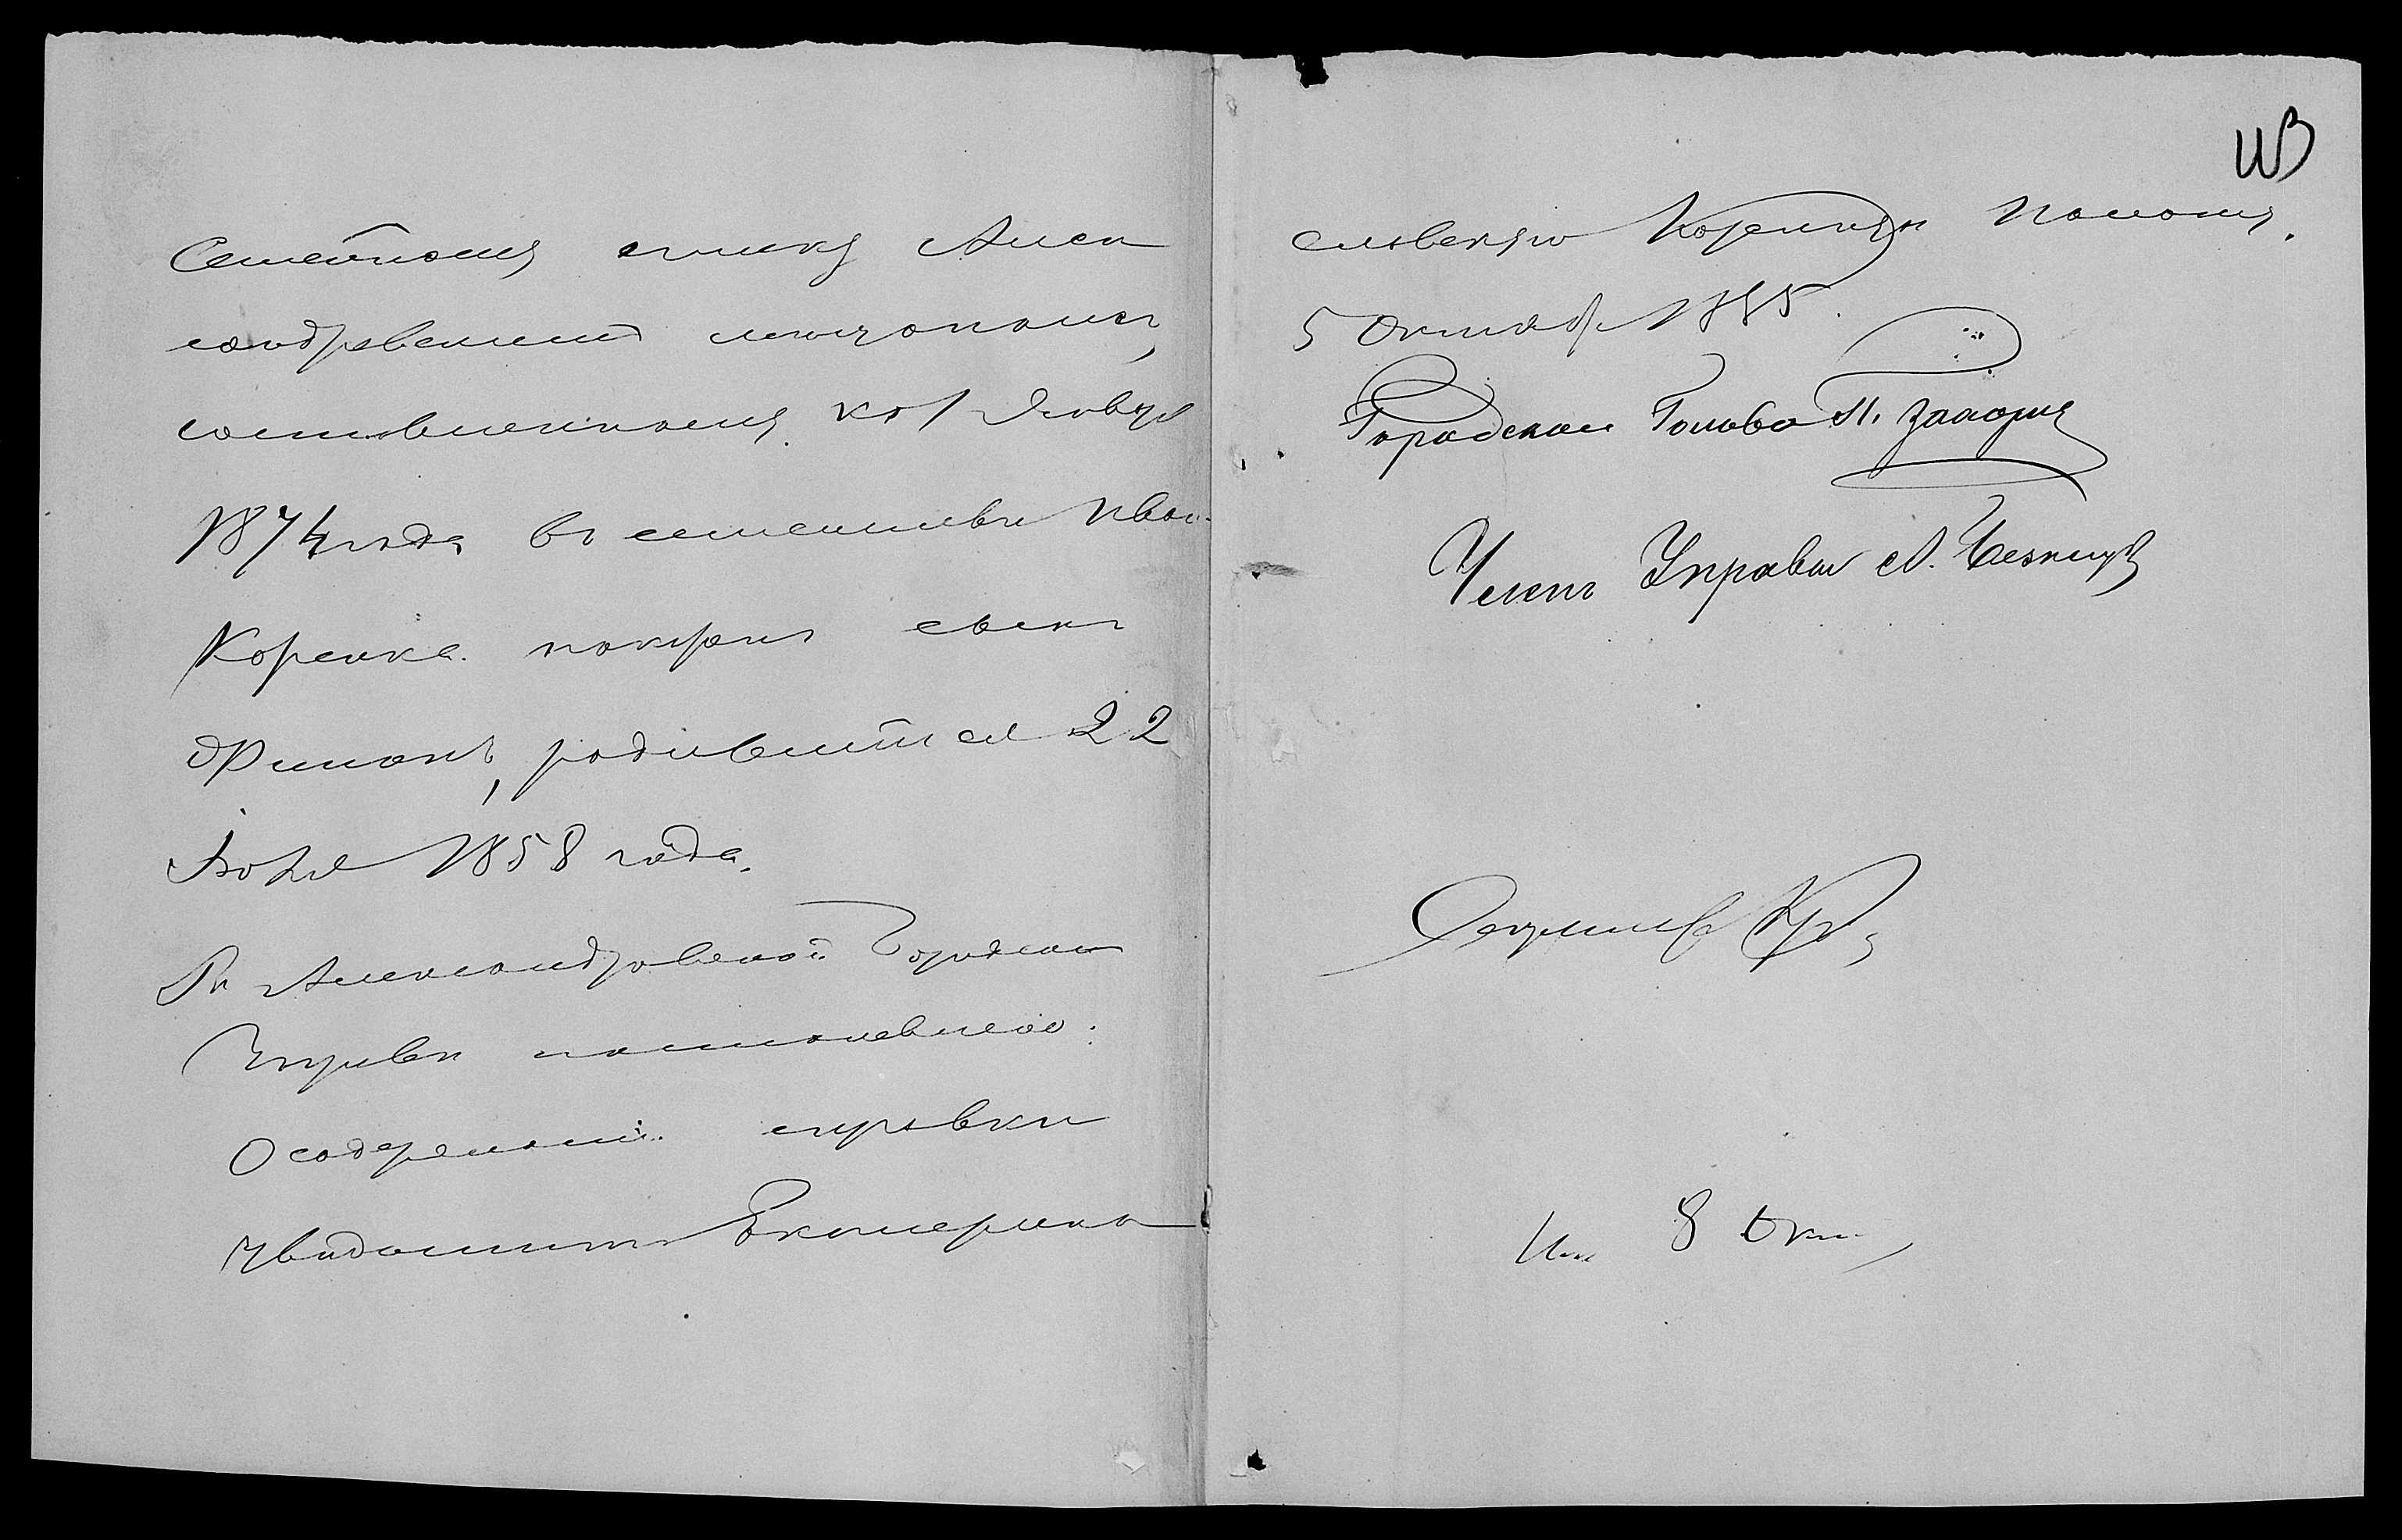 Семейному списку Алек
сандровским мещанам,
составленному къ 1 Января
1874 года въ семействе Ивана
Коренка показанъ сынъ
Филиппъ, родившійся 22
Іюля 1858 года.
Въ Александровской Городской
Управе постановлено:
О содержаніи справки
уведомить Екатерино
славскую Казенную Палату.
5 Октября 1885.
Городской Голова
Членъ Управы
Секретарь
Исп. 8 Окт.